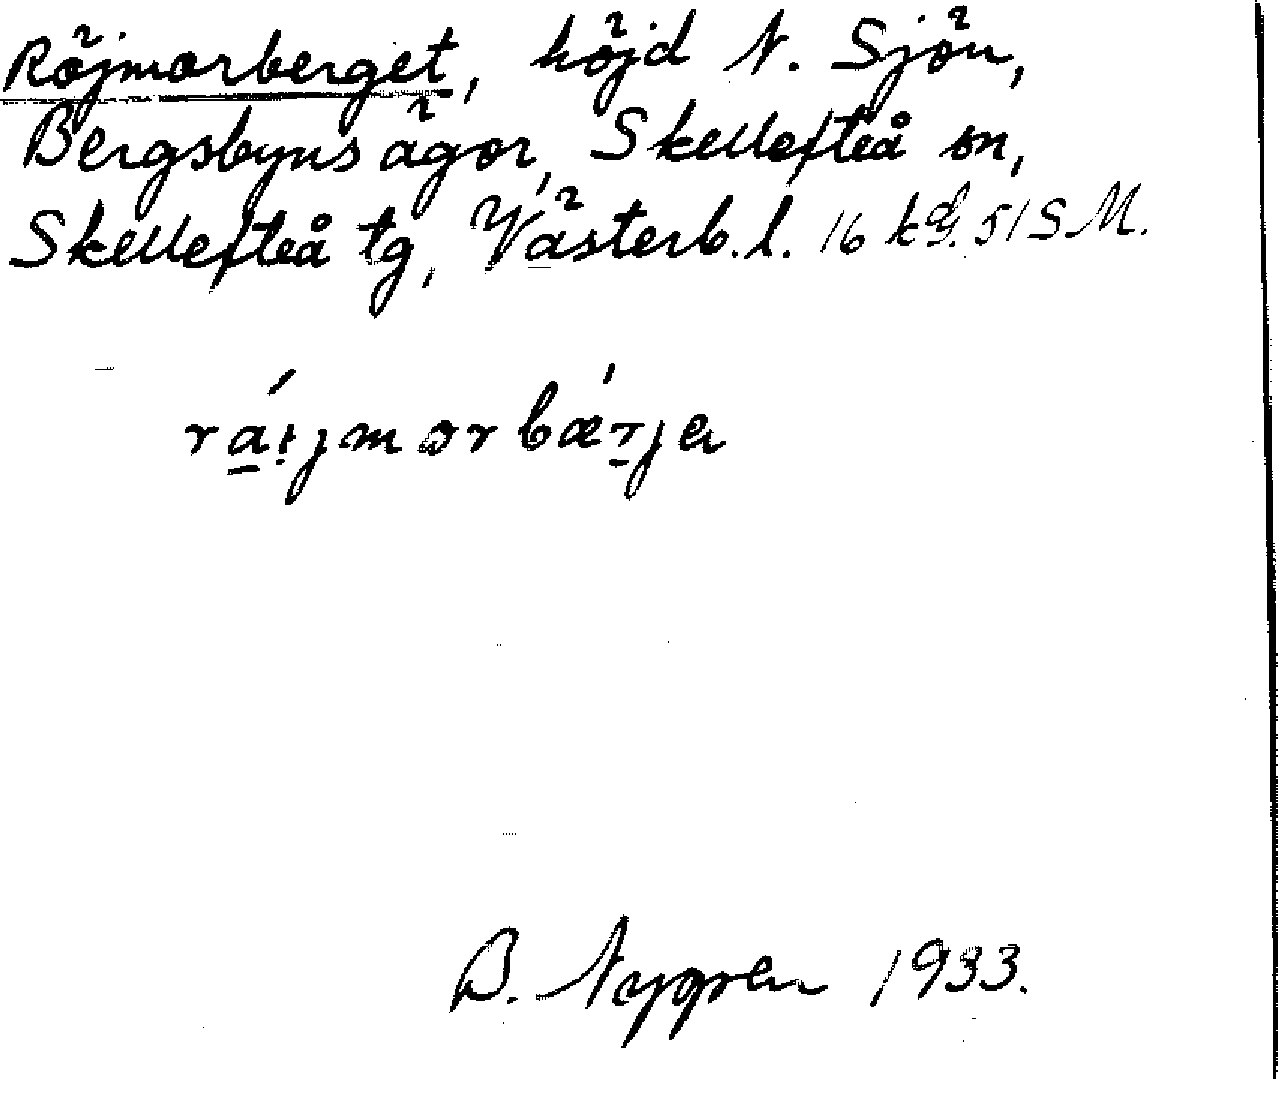 Röjmorberget, höjd N. Sjön,
Bergsbyns ägor, Skellefteå sn,
Skellefteå tg, Västerb. l. 16 kg. 51 S M.
rá̠ı̣jmorbæ´r̠ja
B. Nygren 1933.